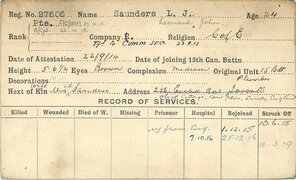 Reg. No. 27606 Name. Saunders L. J. Age. 24
Pte. Leonard John
Rank Company Religion C of E
Tfd to Comm SOO
Date of Attestation 22/9/14 Date of joining 15th Can. Battn.
Height 5' 6¾ Eyes Brown Complexion Medium Original Unit 15 Batt
Next of Kin Mrs Sanders Address Ave Toronto
Surrey, England
RECORD OF SERVICES.
Killed Wounded Died of W. Missing Prisoner Hospital Rejoined Struck Off
1.12.15 10.6.15
7.10.16 25.12.16 10.3.19